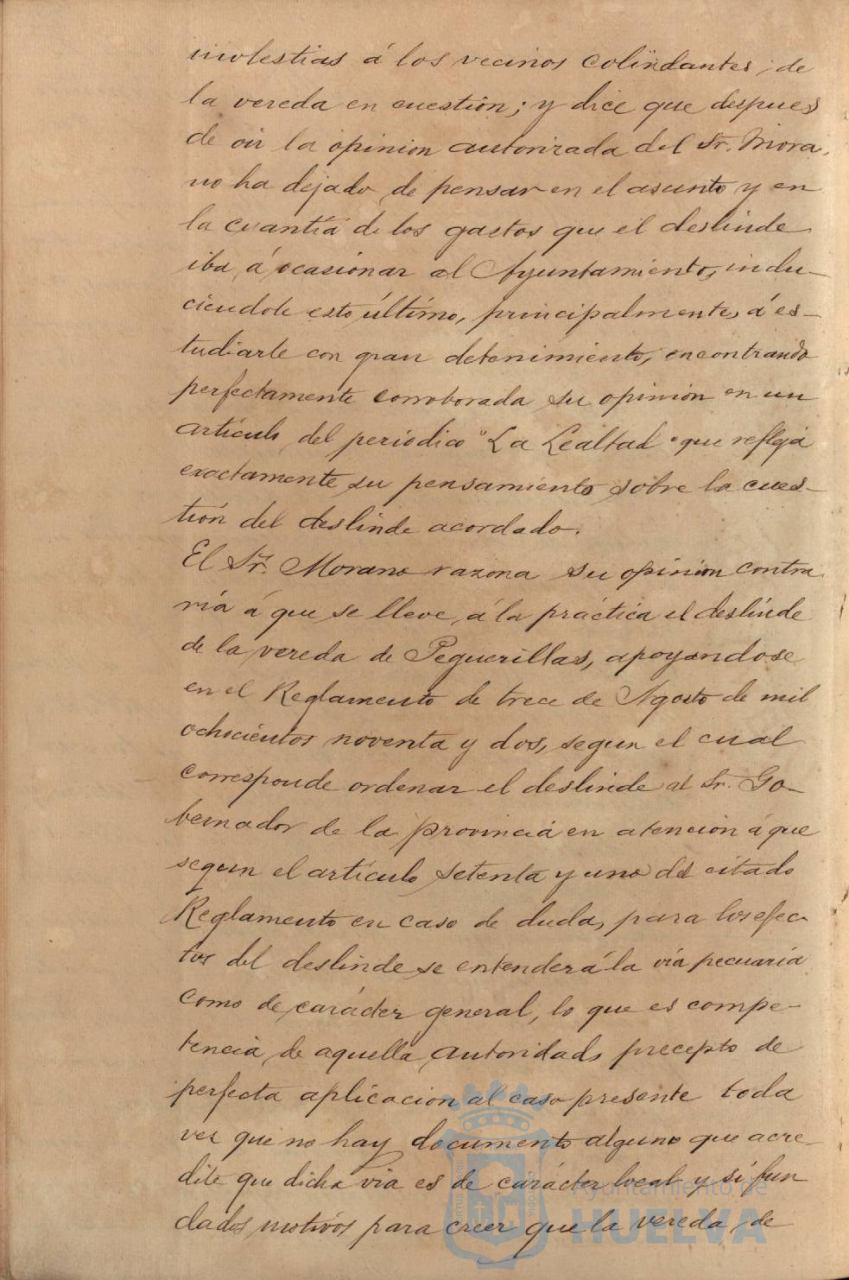 molestias á los vecinos colindantes, de
la vereda en cuestión; y dice que despues
de oir la opinion autorizada del Sr. Mora,
no ha dejado de pensar en el asunto y en
la cuantía de los gastos que el deslinde
iba á ocasionar al Ayuntamiento, indu-
ciendole esto último, principalmente, á es-
tudiarle con gran detenimiento, encontrando
perfectamente corroborada su opinion en un
artículo del periodico "La Lealtad" que refleja
exactamente su pensamiento sobre la cues-
tión del deslinde acordado.
El Sr. Morano razona su opinion contra
ria á que se lleve á la práctica el deslinde
de la vereda de Peguerillas, apoyandose
en el Reglamento de trece de Agosto de mil
ochocientos noventa y dos, segun el cual
corresponde ordenar el deslinde al Sr. Go-
bernador de la provincia en atencion á que
segun el artículo setenta y uno del citado
Reglamento en caso de duda, para los efec-
tos del deslinde se entenderá la via pecuaria
como de carácter general, lo que es compe-
tencia de aquella autoridad, precepto de
perfecta aplicacion al caso presente toda
vez que no hay documento alguno que acre-
dite que dicha via es de carácter local y si fun
dados motivos para creer que la vereda de
Ayuntamiento de
HUELVA